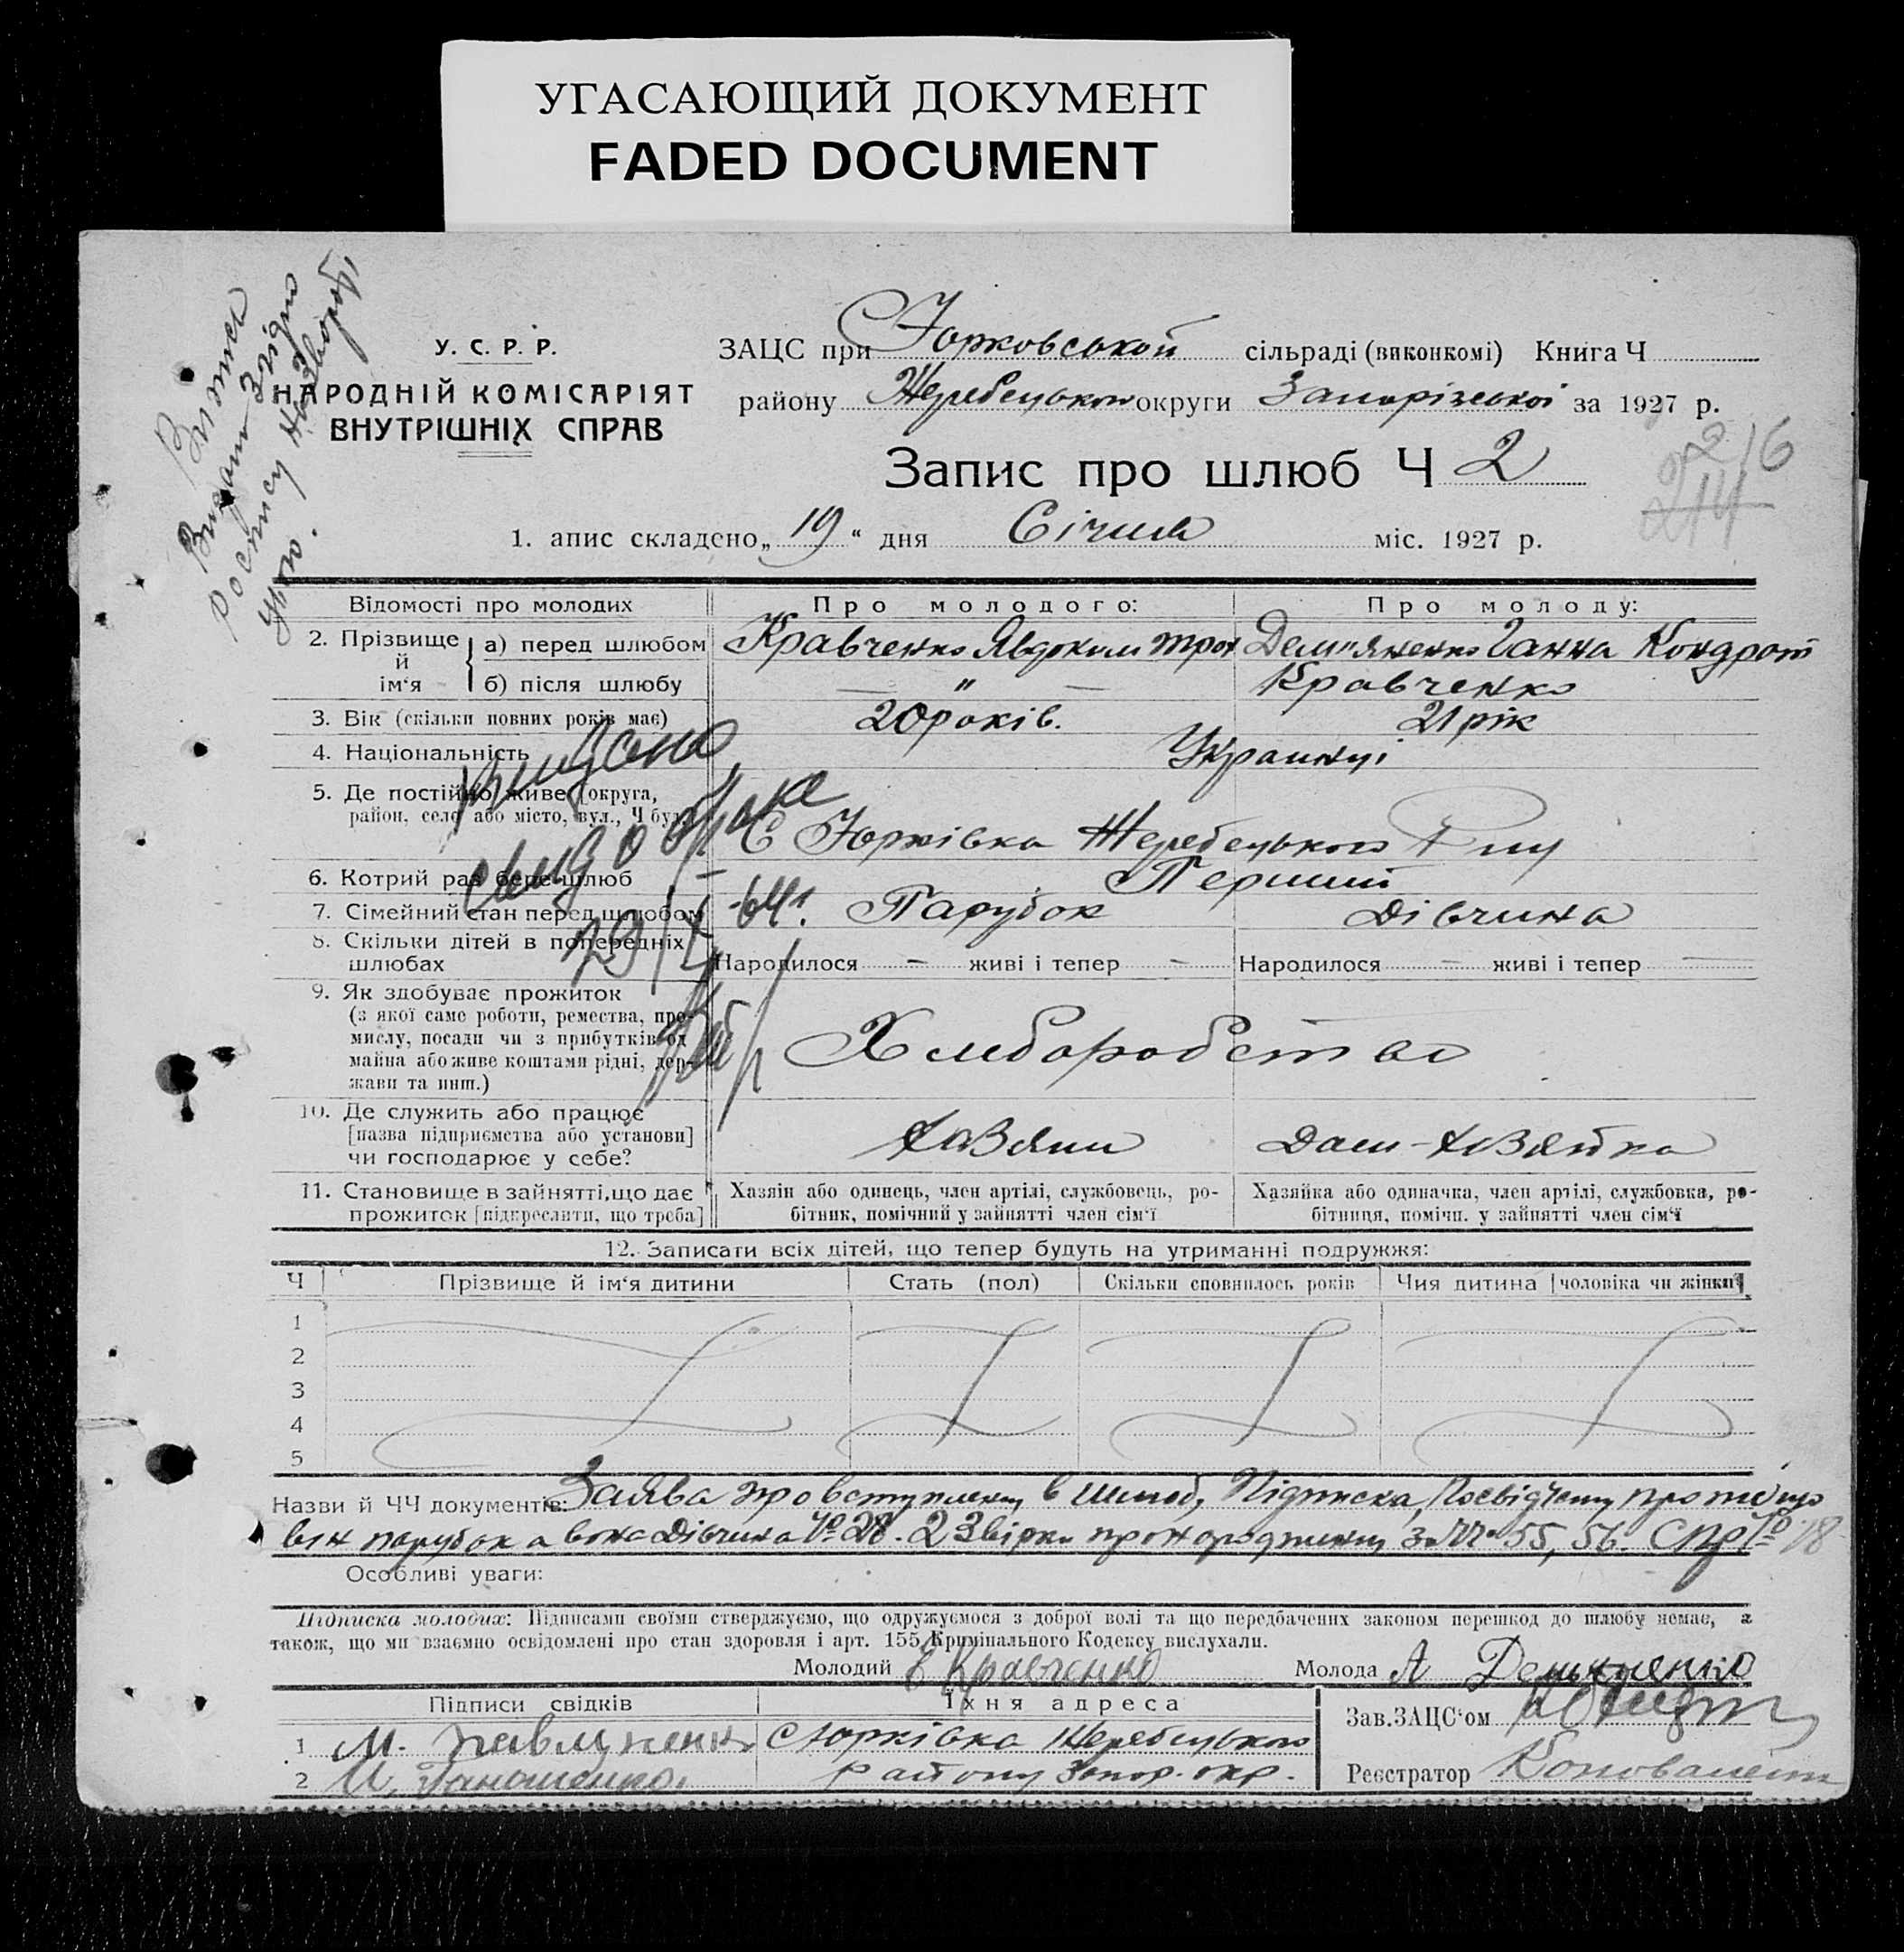 УГАСАЮЩИЙ ДОКУМЕНТ
FADED DOCUMENT
У. С. Р. Р.
НАРОДНІЙ КОМІСАРІЯТ
ВНУТРІШНІХ СПРАВ
ЗАЦС при Юрковської сільраді (виконкомі) Книга Ч
району Жеребецького округи Запорізської за 1927 р.
Запис про шлюб Ч 2
216
214
1. апис складено „ 19 “ дня Січня міс. 1927 р.
Відомості про молодих Про молодого: Про молоду:
2. Прізвище й ім‘я
а) перед шлюбом Кравченко Явдоким Троф Дем'яненко Ганна Кондрат
б) після шлюбу — " — Кравченко
3. Вік (скільки повних років має) 20 років. 21 рік
4. Національність Украинці
5. Де постійно живе [округа,
район, село або місто, вул., Ч буд.
С Юрківка Жеребецького Р-ну
6. Котрий раз бере шлюб Перший
7. Сімейний стан перед шлюбом Парубок Дівчина
8. Скільки дітей в попередніх
шлюбах Народилося — живі і тепер — Народилося — живі і тепер —
9. Як здобуває прожиток
(з якої само роботи, ремества, про-
мислу, посади чи з прибутків од
майна або живе коштами рідні, дер-
жави та инш.)
Хліборобство
10. Де служить або працює
[назва підприємства або установи]
чи господарює у себе?
Хазяин Дом-Хозяйка
11. Становище в зайнятті, що дає
прожиток [підкреслити, що треба]
Хазяін або одинець, член артілі, службовець, ро-
бітник, помічний у зайнятті член сім‘ї
Хазяйка або одиначка, член артілі, службовка, ро-
бітниця, помічн. у зайнятті член сім‘ї
видано
29/X -64г.
12. Записати всіх дітей, що тепер будуть на утриманні подружжя:
Ч Прізвище й ім‘я дитини Стать (пол) Скільки сповнилось років Чия дитина [чоловіка чи жінки]
1
2
3
4
5
Назви й ЧЧ документів: Заява про вступлену в шлюб, Підписка, Посвідчену про те що
він парубок а вона Дівчина № 28. 2 Звірки про народжину за 55, 56. Спр № 18
Особливі уваги:
Підписка молодих: Підписами своїми стверджуємо, що одружуємося з доброї волі та що передбачених законом перешкод до шлюбу немає, а
також, що ми взаємно освідомлені про стан здоровля і арт. 155 Кримінального Кодексу вислухали.
Молодий Е Кравченко Молода А Демьяненко
Підписи свідків Їхня адреса
Зав. ЗАЦС‘ом
1 М. Павлуненко С Юрківка Жеребецького
2 району Запор. окр.
Реєстратор Коновален